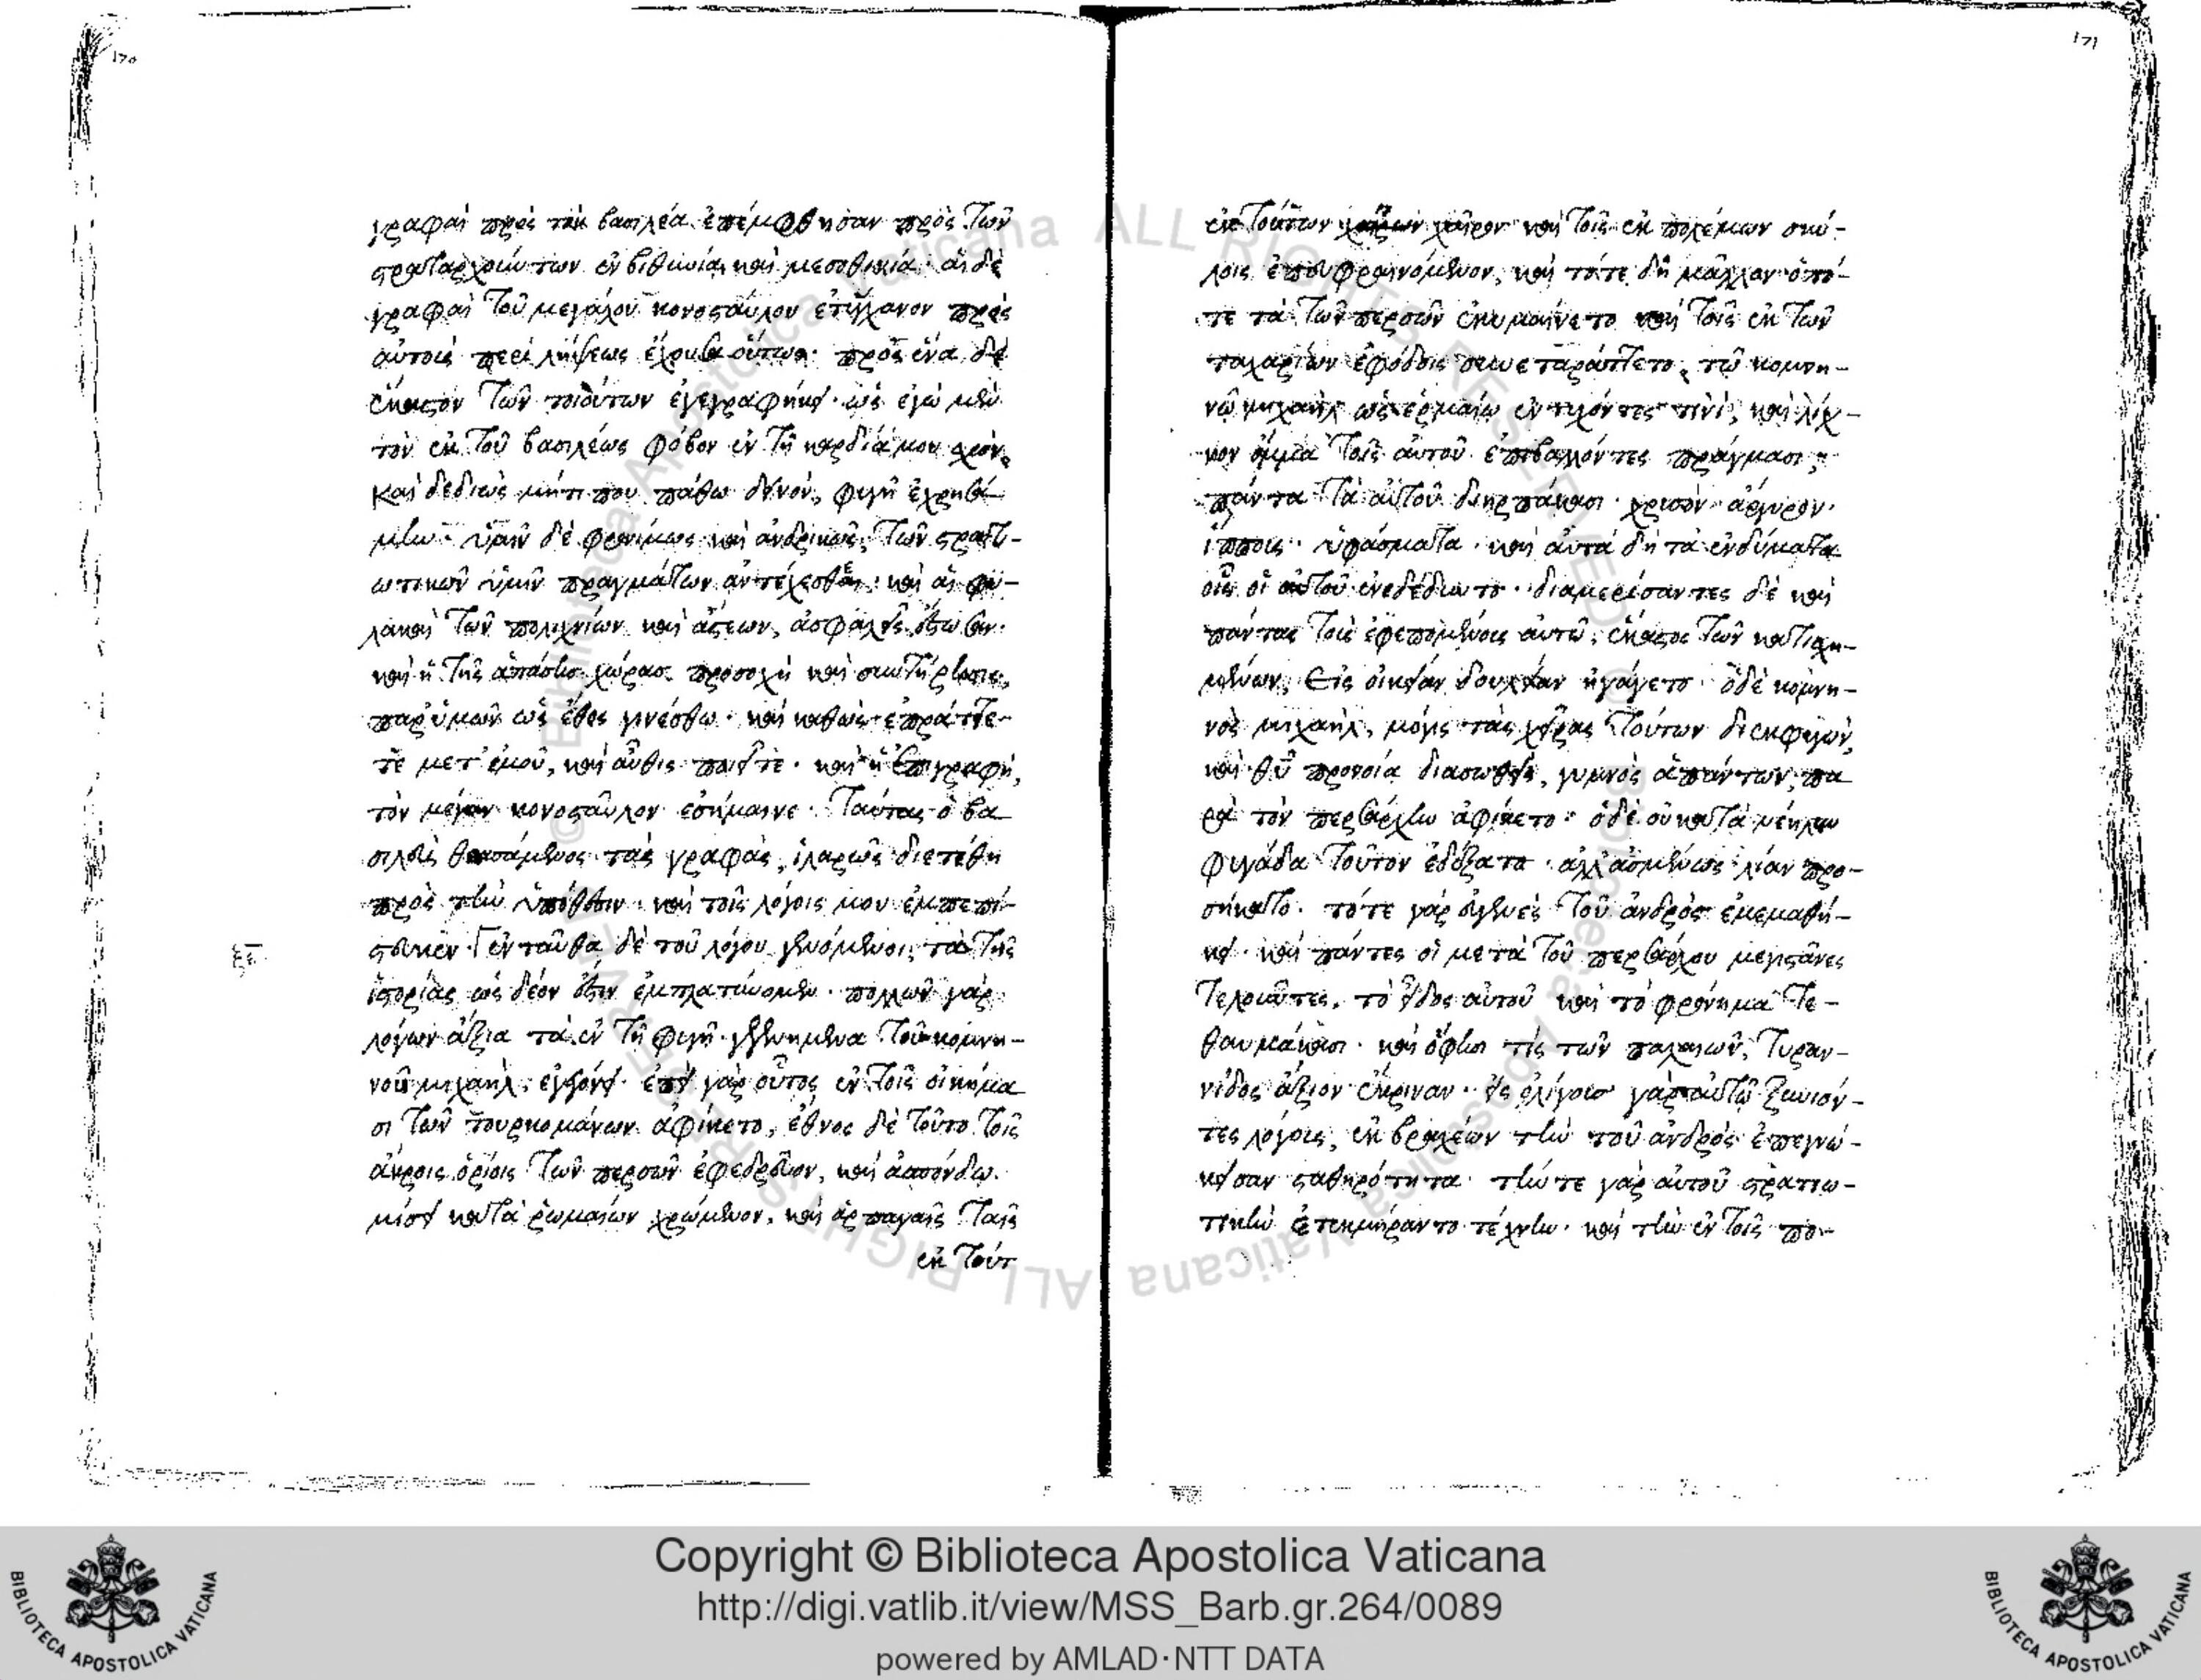 170
γραφαὶ πρὸς τὸν βασιλέα ἐπέμφθησαν πρὸς τῶν
στραταρχούντων ἐν βιθυνία καὶ μεσοθινία· αἱ δὲ
γραφαὶ τοῦ μεγάλου κονοσταύλου ἐτύγχανον πρὸς
αὐτοὺς περὶ λήψεως ἔχουσαι οὕτως· πρὸς ἕνα δὲ
ἕκαστον τῶν τοιούτων ἐγεγραφήκει· ὡς ἐγὼ μὲν
τὸν ἐκ τοῦ βασιλέως φόβον ἐν τῇ καρδία μου
καὶ δεδιὼς μήτι που πάθω δεινόν, φυγῇ ἐχρησά-
μην· ὑμῖν δὲ φρονίμως καὶ ἀνδρικῶς, τῶν στρατι-
ωτικῶν ὑμῖν πραγμάτων ἀντέχεσθαι· καὶ αἱ φυ-
λακαὶ τῶν πολιχνίων καὶ ἄστεων, ἀσφαλεῖς ἔστωσαν·
καὶ ἡ τῆς ἁπάσης χώρας προσοχὴ καὶ συντήρησις,
παρ' ὑμῶν ὡς ἔθος γινέσθω· καὶ καθὼς ἐπράττε-
τε μετ' ἐμοῦ, καὶ αὖθις ποιεῖτε· καὶ ἡ ἐπιγραφὴ,
τὸν μέγαν κονοσταῦλον ἐσήμαινε· ταύτας ὁ βα
σιλεὺς θεασάμενος τὰς γραφὰς, ἱλαρῶς διετέθη
πρὸς τὴν ὑπόθεσιν· καὶ τοῖς λόγοις μου ἐμπεπί-
στευκεν· ἐνταῦθα δὲ τοῦ λόγου γενόμενοι, τὰ τῆς
ξε
ἱστορίας ὡς δέον ἐστὶν ἐμπλατύνομεν· πολλῶν γὰρ
λόγων ἄξια τὰ ἐν τῇ φυγῇ γεγενημένα τοῦ κομνη-
νοῦ μιχαὴλ, ἐγεγόνει· ἐπεὶ γὰρ οὗτος ἐν τοῖς οἰκήμα
σι τῶν τουρκομάνων ἀφίκετο, ἔθνος δὲ τοῦτο τοῖς
ἄκροις ὁρίοις τῶν περσῶν ἐφεδρεῦον, καὶ ἀσπόνδω
μίσει κατὰ ῥωμαίων χρώμενον, καὶ ἁρπαγαῖς ταῖς
ἐκ τούτ
171
ἐκ τούτων χαῖρον καὶ τοῖς ἐκ πολέμων σκύ-
λοις ἐπευφραινόμενον, καὶ τότε δὴ μᾶλλον ὁπό-
τε τὰ τῶν περσῶν ἐκυμαίνετο καὶ τοῖς ἐκ τῶν
ταχαρίων ἐφόδοις συνεταράττετο, τῷ κομνη-
νῷ μιχαὴλ ὡς ἑρμαίῳ ἐντυχόντες τινὶ, καὶ λίχ-
νον ὄμμα τοῖς αὐτοῦ ἐπιβαλλόντες πράγμασι,
πάντα τὰ αὐτοῦ διηρπάκασι· χρυσὸν ἄργυρον·
ἵππους· ὑφάσματα· καὶ αὐτὰ δὴ τὰ ἐνδύματα
οἷς οἱ αὐτοῦ ἐνεδέδυντο· διαμερίσαντες δὲ καὶ
πάντας τοὺς ἐφεπομένους αὐτῷ, ἕκαστος τῶν κατισχη-
μένων, εἰς οἰκείαν δουλείαν ἠγάγετο· ὁ δὲ κομνη-
νὸς μιχαὴλ, μόγις τὰς χεῖρας τούτων διεκφυγὼν,
καὶ θεοῦ προνοία διασωθεὶς, γυμνὸς ἁπάντων, πα
ρὰ τὸν περσάρχην ἀφίκετο· ὁ δὲ οὐ κατὰ
φυγάδα τοῦτον ἐδέξατο· ἀλλ' ἀσμένως λίαν προ-
σήκατο· τότε γὰρ εὐγενὲς τοῦ ἀνδρὸς ἐμεμαθή-
κει· καὶ πάντες οἱ μετὰ τοῦ περσάρχου μεγιστᾶνες
τελοῦντες, τὸ εἶδος αὐτοῦ καὶ τὸ φρόνημα τε-
θαυμάκασι· καὶ ὄψιν τίς τῶν παλαιῶν, τυραν-
νίδος ἄξιον ἔκριναν· εἰς ὀλίγους γὰρ αὐτῷ ξυνιόν-
τες λόγους, ἐκ βραχέων τὴν τοῦ ἀνδρὸς ἐπεγνώ-
κεισαν σταθηρότητα· τήν τε γὰρ αὐτοῦ στρατιω-
τικὴν ἐτεκμήραντο τέχνην· καὶ τὴν ἐν τοῖς πο-
Copyright © Biblioteca Apostolica Vaticana
http://digi.vatlib.it/view/MSS_Barb.gr.264/0089
powered by AMLAD·NTT DATA
BIBLIOTECA APOSTOLICA VATICANA
BIBLIOTECA APOSTOLICA VATICANA
© Biblioteca Apostolica Vaticana ALL RIGHTS RESERVED
© Biblioteca Apostolica Vaticana ALL RIGHTS